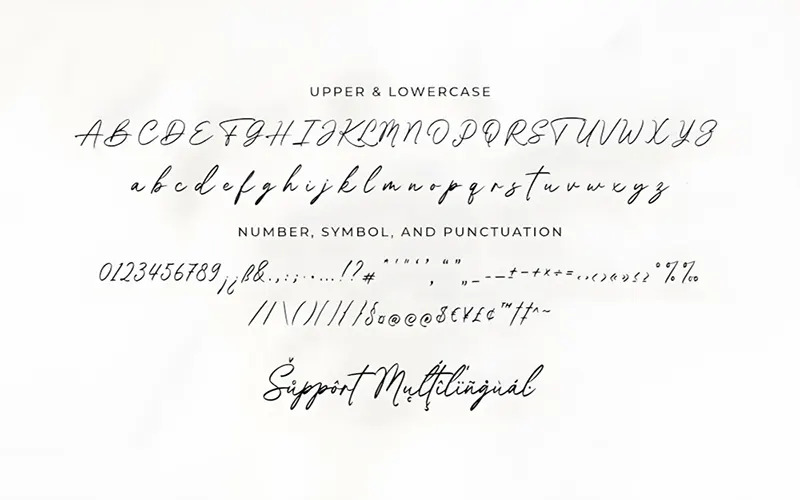 UPPER & LOWERCASE
A B C D E F G H I J K L M N O P Q R S T U V W X Y Z
a b c d e f g h i j k l m n o p q r s t u v w x y z
NUMBER, SYMBOL, AND PUNCTUATION
0123456789¡¿ß&.,:;·.…!?#
/|\()[]{}§¤@@@$€¥£¢™†‡^~
Šůppôrt Mųļţîlïñġùál